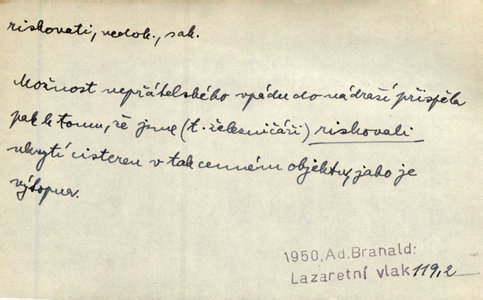 riskovati, nedok., sak.
Možnost nepřátelského vpádu do nádraží přispěla
pak k tomu, že jsme (t. železničáři) riskovali
ukrytí cisteren v tak cenném objektu, jako je
výtopna.
1950, Ad. Branald:
Lazaretní vlak 119,2